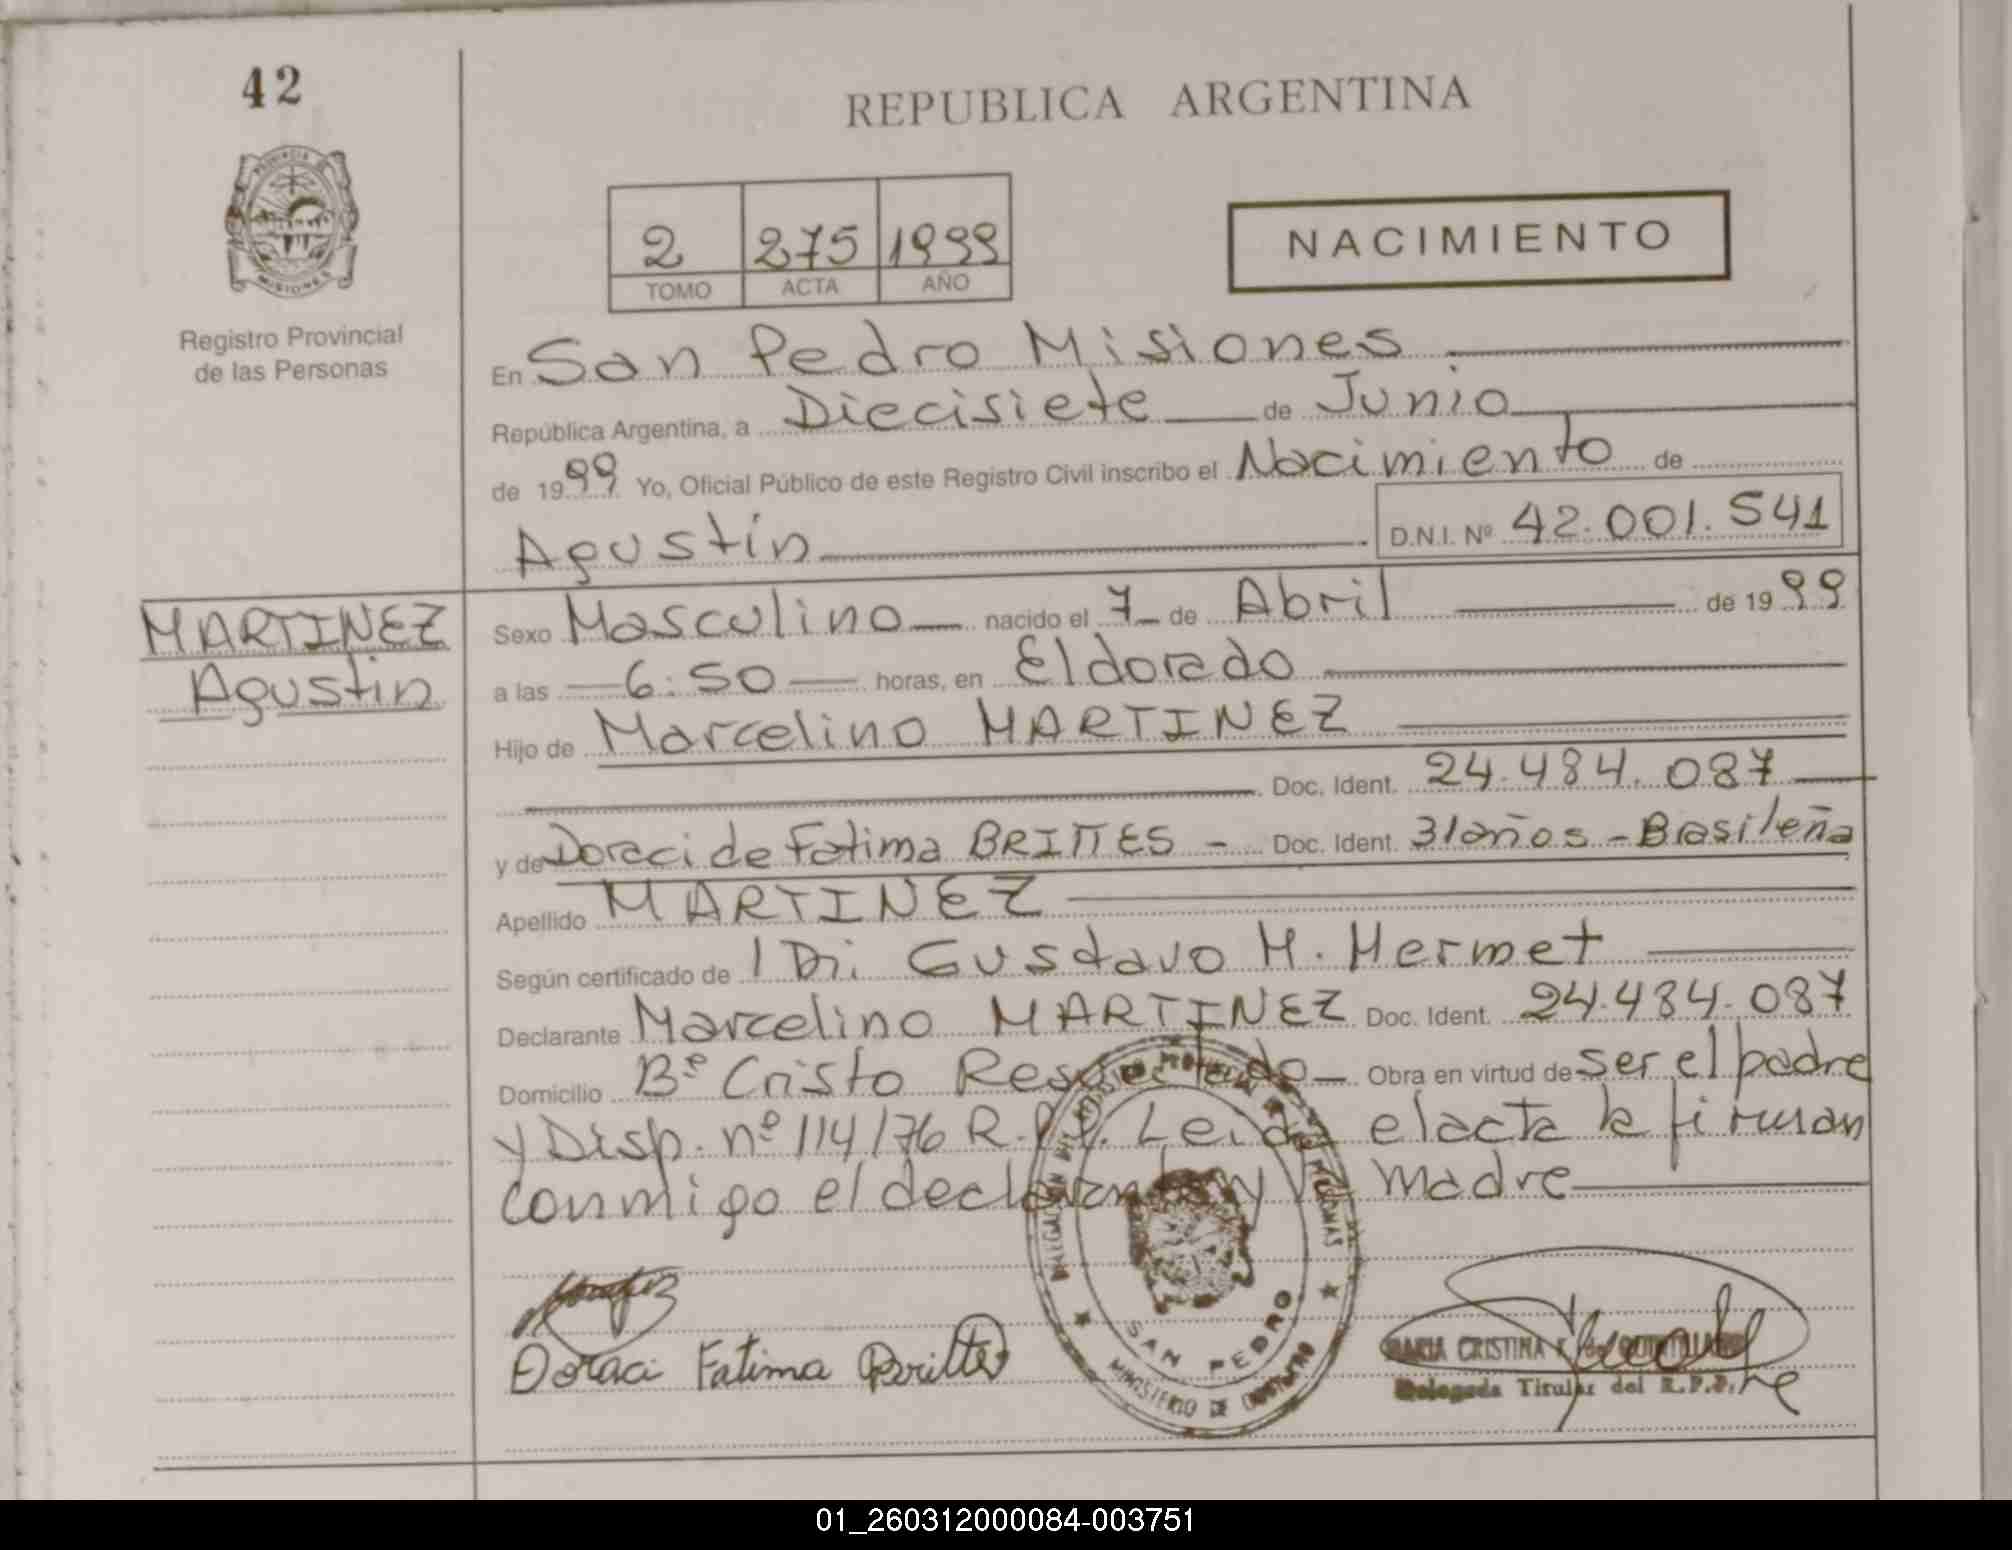 42
REPUBLICA ARGENTINA
PROVINCIA DE
MISIONES
Registro Provincial
de las Personas
2 275 1999
TOMO ACTA AÑO
NACIMIENTO
En San Pedro Misiones
República Argentina, a Diecisiete de Junio
de 1999 Yo, Oficial Público de este Registro Civil inscribo el Nacimiento de
Agustín D.N.I. Nº 42.001.541
MARTINEZ
Agustin
Sexo Masculino nacido el 7 de Abril de 1999
a las 6:50 horas, en Eldorado
Hijo de Marcelino MARTINEZ
Doc. Ident. 24.484.087
y de Doraci de Fatima BRITTES - Doc. Ident. 31 años - Brasileña
Apellido MARTINEZ
Según certificado de Gustavo H. Hermet
Declarante Marcelino MARTINEZ Doc. Ident. 24.484.087
Domicilio Bº Cristo Resucitado Obra en virtud de ser el padre
y Disp. nº 114/76 R.P.P. Leida el acta la firman
conmigo el declarante y la madre
Doraci Fatima Brittes
SAN PEDRO
MINISTERIO DE GOBIERNO
MARIA CRISTINA
Delegada Titular del R.P.P.
01_260312000084-003751